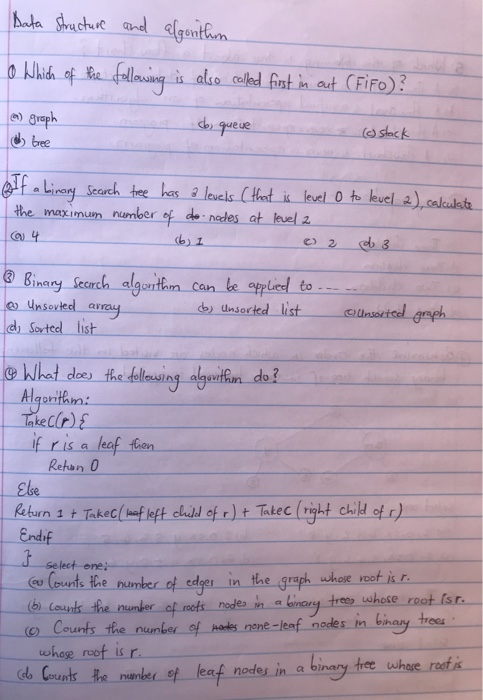 Data Structure and algorithm
① Which of the following is also called first in out (FiFo)?
(a) graph (b) queue (c) stack
(d) tree
② If a binary search tree has 3 levels (that is level 0 to level 2), calculate
the maximum number of nodes at level 2
(a) 4 (b) 1 (c) 2 (d) 3
③ Binary Search algorithm can be applied to ---- --
(a) Unsorted array (b) unsorted list (c) Unsorted graph
(d) Sorted list
④ What does the following algorithm do?
Algorithm:
TakeC(r) {
if r is a leaf then
Return 0
Else
Return 1 + TakeC(left child of r) + TakeC (right child of r)
Endif
} select one:
(a) Counts the number of edges in the graph whose root is r.
(b) counts the number of roots nodes in a binary trees whose root is r.
(c) Counts the number of none-leaf nodes in binary trees
whose root is r.
(d) Counts the number of leaf nodes in a binary tree whose root is